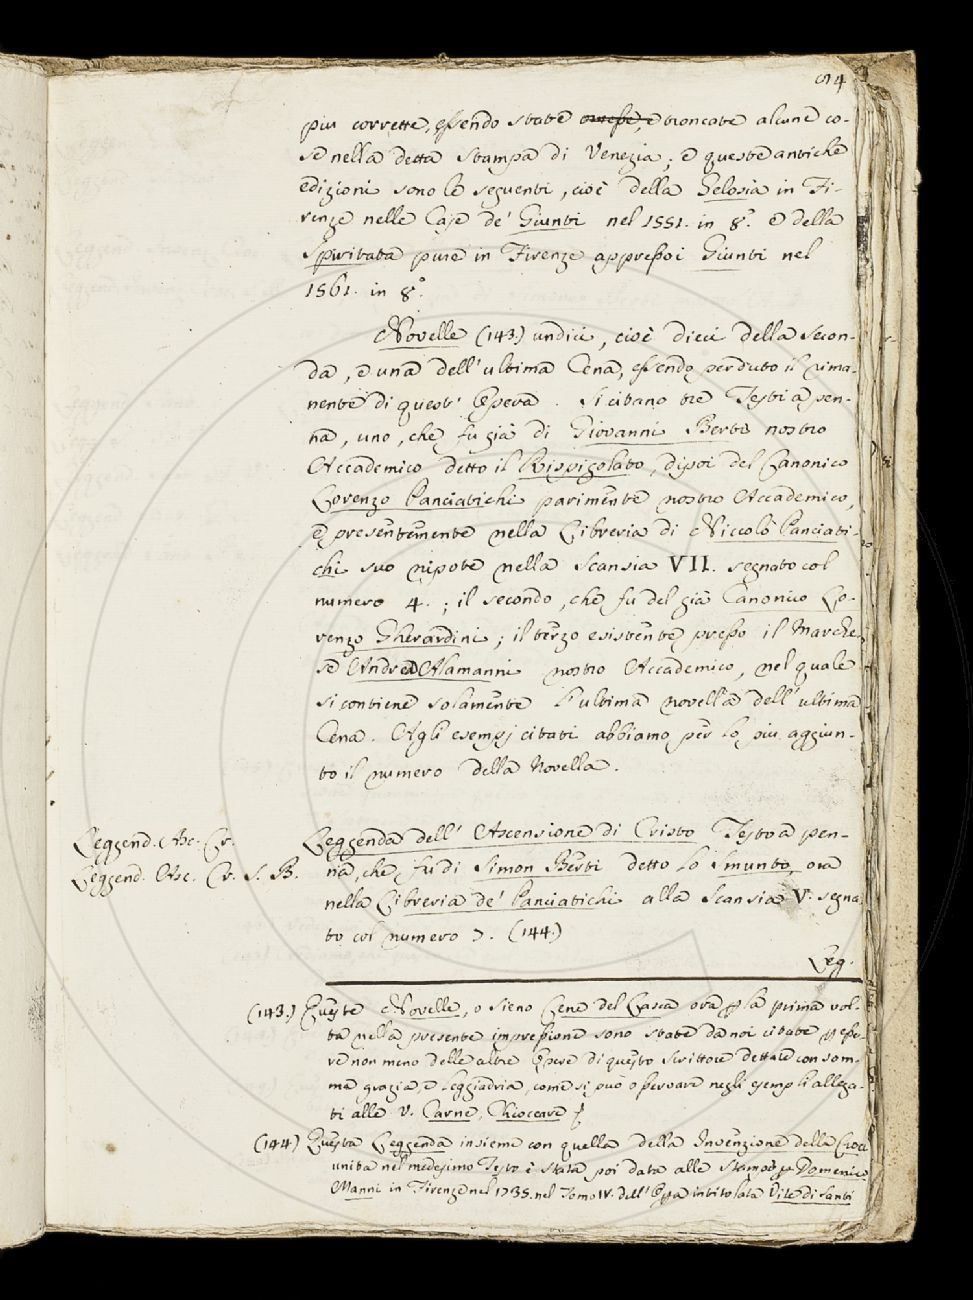 94
piu corrette, essendo state omesse, e troncate alcune co-
se nella detta stampa di Venezia; e queste antiche
edizioni sono le seguenti, cioè della Gelosia in Fi-
renze nelle Case de' Giunti nel 1551. in 8.° e della
Spiritata pure in Firenze appresso i Giunti nel
1561. in 8.°
Novelle (143.) undici, cioè dieci della Secon-
da, e una dell' ultima Cena, essendo perduto il rima-
nente di quest' Opera. Si citano tre Testi a pen-
na, uno, che fu già di Giovanni Berti nostro
Accademico detto il Rispigolato, dipoi del Canonico
Lorenzo Panciatichi parimente nostro Accademico,
e presentemente nella Libreria di Niccolò Panciati-
chi suo nipote nella Scansia VII. segnato col
numero 4.; il secondo, che fu del già Canonico Lo-
renzo Gherardini; il terzo esistente presso il Marche-
se Andrea Alamanni nostro Accademico, nel quale
si contiene solamente l'ultima novella dell' ultima
Cena. Agli esempj citati abbiamo per lo piu aggiun-
to il numero della Novella.
Leggend. Asc. Cr.
Leggend. Asc. Cr. S. B.
Leggenda dell' Ascensione di Cristo Testo a pen-
na, che fu di Simon Berti detto lo Smunto, ora
nella Libreria de' Panciatichi alla Scansia V. segna-
to col numero 7. (144.)
Leg.
(143.) Queste Novelle, o sieno Cene del Lasca ora p la prima vol-
ta nella presente impressione sono state da noi citate p esse-
re non meno delle altre Opere di questo Scrittore dettate con som-
ma grazia, e leggiadria, come si può osservare negli esempli allega-
ti alle V. Carne, Chioccare
(144) Questa Leggenda insieme con quella della Invenzione della Croce
unita nel medesimo Testo è stata poi data alle Stampe p Domenico
Manni in Firenze nel 1735. nel Tomo IV. dell' Opa intitolata Vite di Santi